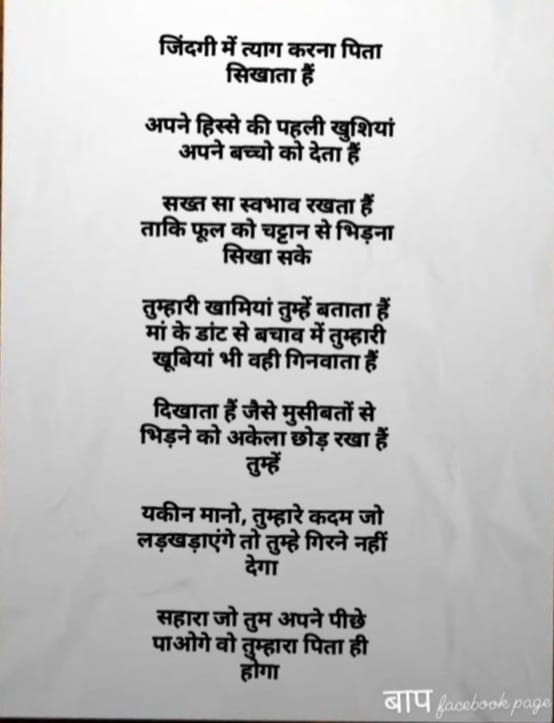 जिंदगी में त्याग करना पिता
सिखाता हैं
अपने हिस्से की पहली खुशियां
अपने बच्चो को देता हैं
सख्त सा स्वभाव रखता हैं
ताकि फूल को चट्टान से भिड़ना
सिखा सके
तुम्हारी खामियां तुम्हें बताता हैं
मां के डांट से बचाव में तुम्हारी
खूबियां भी वही गिनवाता हैं
दिखाता हैं जैसे मुसीबतों से
भिड़ने को अकेला छोड़ रखा हैं
तुम्हें
यकीन मानो, तुम्हारे कदम जो
लड़खड़ाएंगे तो तुम्हे गिरने नहीं
देगा
सहारा जो तुम अपने पीछे
पाओगे वो तुम्हारा पिता ही
होगा
बाप facebook page